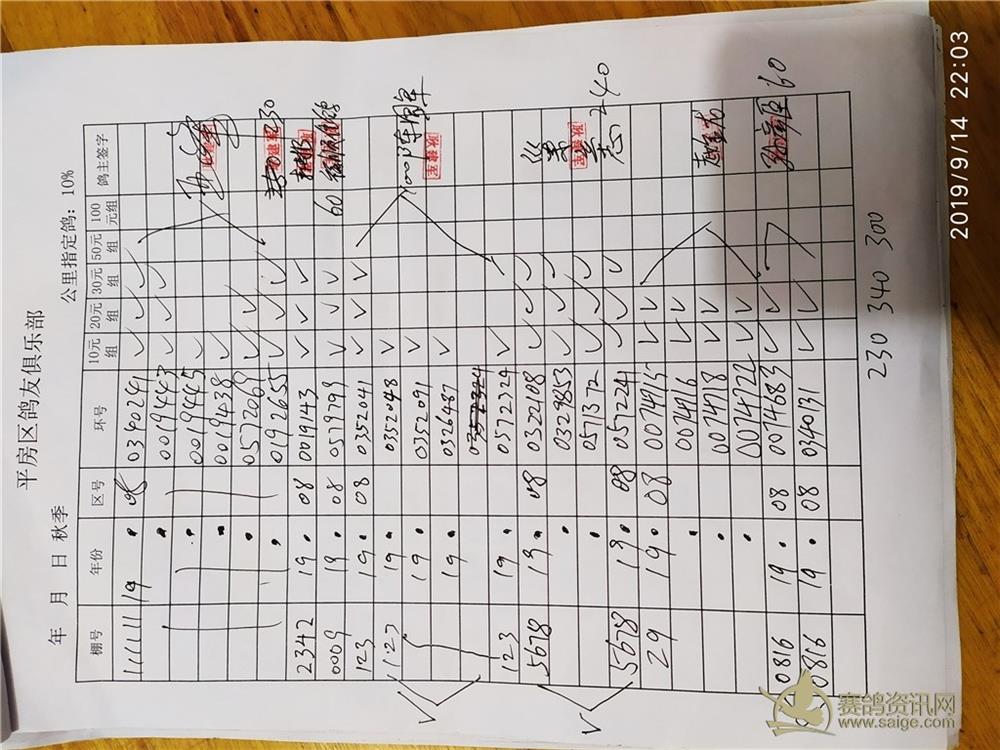 平房区鸽友俱乐部
年 月 日 秋季 公里指定鸽：10%
棚号 年份 区号 环号 10元组 20元组 30元组 50元组 100元组 鸽主签字
111111 19 08 0340241 ✓ ✓ ✓
0019443 ✓ ✓ ✓
0019445 ✓
0019438 ✓ ✓
0572069 ✓ ✓
0192655 ✓ ✓ ✓ 30
2342 19 08 0019143 ✓ ✓ ✓
0009 19 08 0579799 ✓ ✓ ✓ 60
123 19 08 0352041 ✓ ✓ ✓
123 19 0352048 ✓
19 0352091 ✓
19 0326487 ✓
123 19 0572324 ✓ ✓
5678 19 08 0322108 ✓ ✓ ✓
0329853 ✓ ✓ ✓
0571372 ✓ ✓ ✓ 240
5678 19 08 0572241 ✓ ✓ ✓
29 19 08 0074715 ✓ ✓
0074716 ✓ ✓
0074718 ✓ ✓
0074722 ✓ ✓
0816 19 08 0074683 ✓ ✓ ✓ 60
0816 19 08 0340131 ✓ ✓
230 340 300
2019/9/14 22:03
赛鸽资讯网
www.saige.com